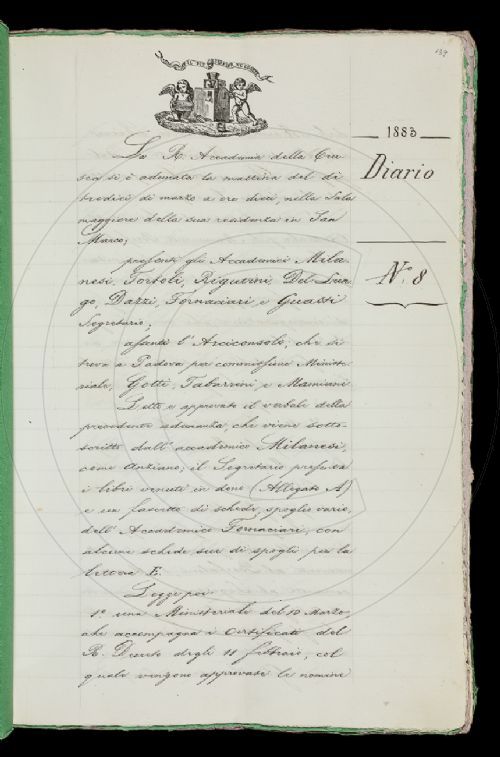 139
1883
Diario
N.° 8
La R. Accademia della Cru
sca si è adunata la mattina del dì
tredici di marzo a ore dieci, nella Sala
maggiore della sua residenza in San
Marco;
presenti gli Accademici Mila
nesi, Tortoli, Rigutini, Del Lun
go, Dazzi, Fornaciari, e Guasti
Segretario;
assenti l'Arciconsolo, che si
trova a Padova per commissione Ministe
riale, Gotti, Tabarrini e Mamiani
Letto e approvato il verbale della
precedente adunanza, che viene sotto
scritto dall'accademico Milanesi,
come Anziano, il Segretario presenta
i libri venuti in dono (Allegato A)
e un fascetto di schede, spoglio vario,
dell'Accademico Fornaciari, con
alcune schede sue di spoglio per la
lettera E.
Legge poi
1.° una Ministeriale del 10 Marzo
che accompagna i Certificati del
R. Decreto degli 11 febbraio, col
quale vengono approvate le nomine